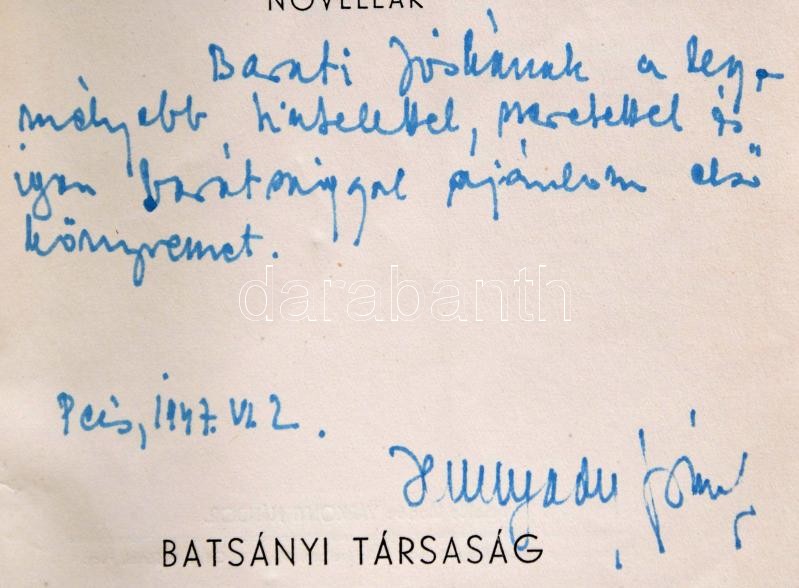 NOVELLÁK
Baráti Jóskának a leg-
mélyebb tisztelettel, szeretettel és
igaz barátsággal ajánlom első
könyvemet.
darabanth
Pécs, 1947. VI. 2.
Hunyady József
BATSÁNYI TÁRSASÁG